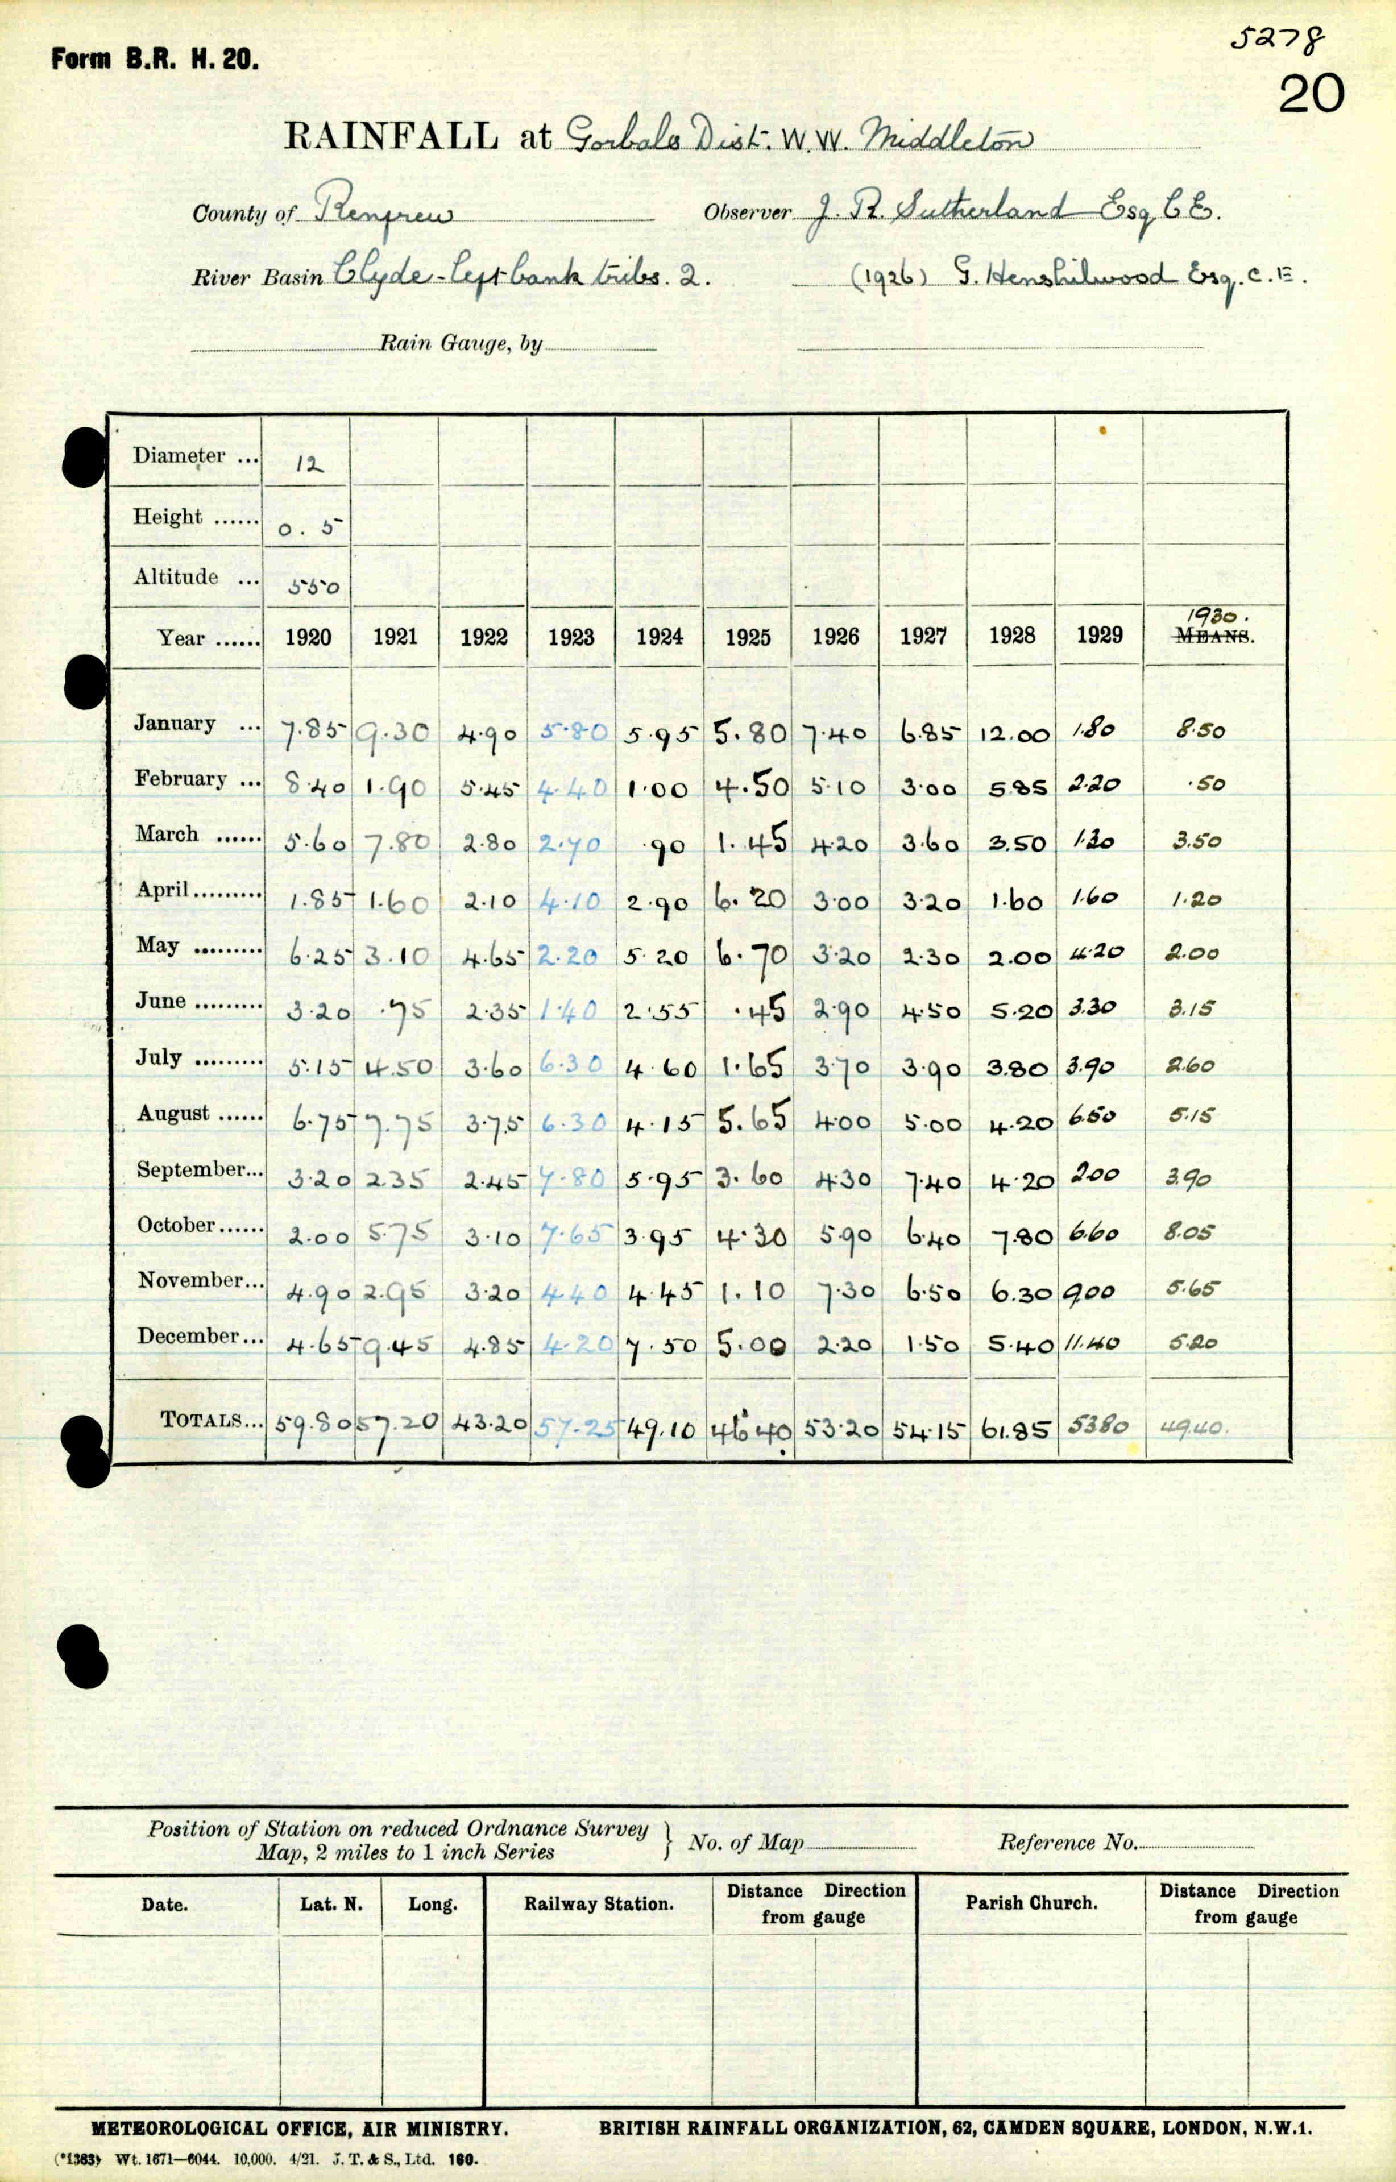 5278
20
Form B.R. H. 20.
RAINFALL at Gorbals Dist. W.W. Middleton
County of Renfrew Observer J. R. Sutherland Esq C.E.
River Basin Clyde - left bank tribs. 2. (1926) G. Henshilwood Esq. C.E.
Rain Gauge, by
Diameter ... 12
Height ...... 0. 5
Altitude ... 550
1930.
Year ...... 1920 1921 1922 1923 1924 1925 1926 1927 1928 1929 MEANS.
January ... 7.85 9.30 4.90 5.80 5.95 5.80 7.40 6.85 12.00 1.80 8.50
February ... 8.40 1.90 5.45 4.40 1.00 4.50 5.10 3.00 5.85 2.20 .50
March ...... 5.60 7.80 2.80 2.70 .90 1.45 4.20 3.60 3.50 1.30 3.50
April......... 1.85 1.60 2.10 4.10 2.90 6.20 3.00 3.20 1.60 1.60 1.20
May ......... 6.25 3.10 4.65 2.20 5.20 6.70 3.20 2.30 2.00 4.20 2.00
June ......... 3.20 .75 2.35 1.40 2.55 .45 2.90 4.50 5.20 3.30 3.15
July ......... 5.15 4.50 3.60 6.30 4.60 1.65 3.70 3.90 3.80 3.90 2.60
August ...... 6.75 7.75 3.75 6.30 4.15 5.65 4.00 5.00 4.20 6.50 5.15
September... 3.20 2.35 2.45 7.80 5.95 3.60 4.30 7.40 4.20 2.00 3.90
October...... 2.00 5.75 3.10 7.65 3.95 4.30 5.90 6.40 7.80 6.60 8.05
November... 4.90 2.95 3.20 4.40 4.45 1.10 7.30 6.50 6.30 9.00 5.65
December... 4.65 9.45 4.85 4.20 7.50 5.00 2.20 1.50 5.40 11.40 5.20
TOTALS... 59.80 57.20 43.20 57.25 49.10 46.40 53.20 54.15 61.85 53.80 49.40.
Position of Station on reduced Ordnance Survey
Map, 2 miles to 1 inch Series } No. of Map Reference No.
Date. Lat. N. Long. Railway Station. Distance Direction from gauge Parish Church. Distance Direction from gauge
METEOROLOGICAL OFFICE, AIR MINISTRY. BRITISH RAINFALL ORGANIZATION, 62, CAMDEN SQUARE, LONDON, N.W.1.
(*1383) Wt. 1671—6044. 10,000. 4/21. J. T. & S., Ltd. 160.